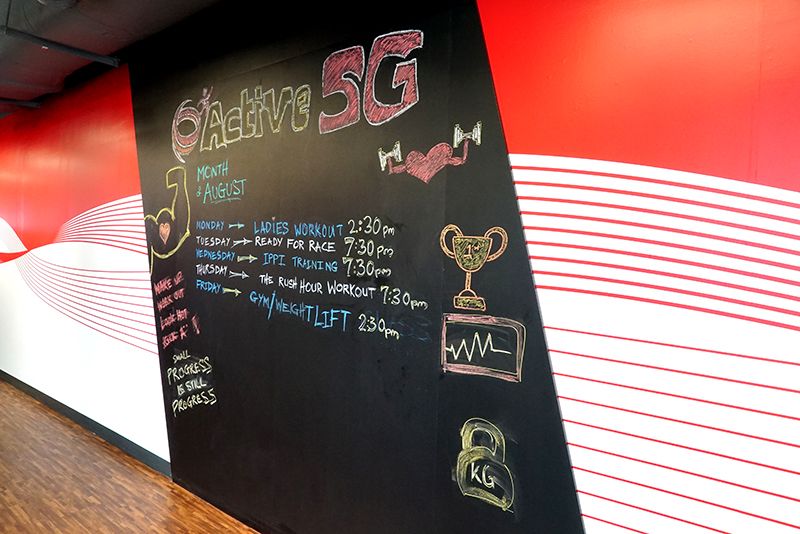 Active SG
MONTH
of AUGUST
MONDAY → LADIES WORKOUT 2:30pm
TUESDAY → READY FOR RACE 7:30pm
WEDNESDAY → IPPI TRAINING 7:30pm
THURSDAY → THE RUSH HOUR WORKOUT 7:30pm
FRIDAY → GYM/WEIGHT LIFT 2:30pm
WAKE UP
WORK OUT
LOOK HOT
SMALL
PROGRESS
IS STILL
PROGRESS
1st
KG